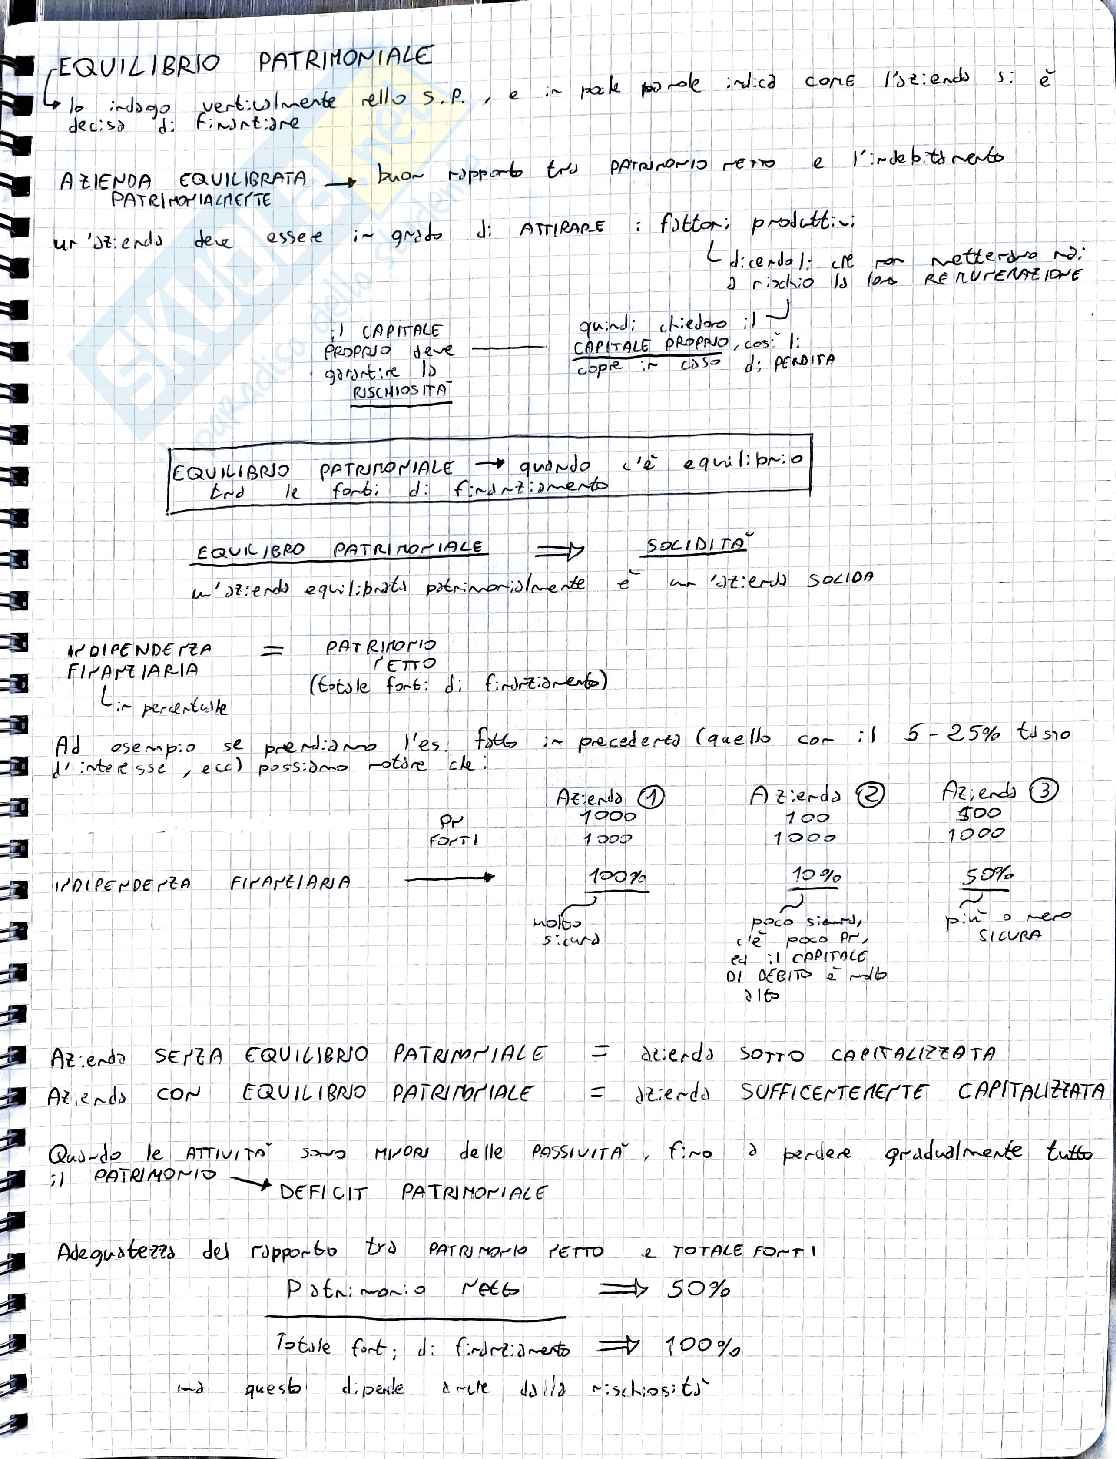 EQUILIBRIO PATRIMONIALE
lo indago verticalmente nello S.P., e in poche parole indica come l'azienda si è
decisa di finanziare
AZIENDA EQUILIBRATA → buon rapporto tra PATRIMONIO NETTO e l'indebitamento
PATRIMONIALMENTE
un'azienda deve essere in grado di ATTIRARE i fattori produttivi
dicendoli che non metteranno mai
a rischio la loro REMUNERAZIONE
il CAPITALE
PROPRIO deve
garantire la
RISCHIOSITÀ
quindi chiedono il
CAPITALE PROPRIO, così li
copre in caso di PERDITA
EQUILIBRIO PATRIMONIALE → quando c'è equilibrio
tra le fonti di finanziamento
EQUILIBRO PATRIMONIALE ⇒ SOLIDITÀ
un'azienda equilibrata patrimonialmente è un'azienda SOLIDA
INDIPENDENZA = PATRIMONIO
FINANZIARIA NETTO
in percentuale (totale fonti di finanziamento)
Ad esempio se prendiamo l'es. fatto in precedenza (quello con il 5-25% tasso
d'interesse, ecc) possiamo notare che:
Azienda 1 Azienda 2 Azienda 3
PN 1000 100 500
FONTI 1000 1000 1000
INDIPENDENZA FINANZIARIA → 100% 10% 50%
molto
sicura
poco sicura,
c'è poco PN,
ed il CAPITALE
DI DEBITO è molto
alto
più o meno
SICURA
Azienda SENZA EQUILIBRIO PATRIMONIALE = azienda SOTTO CAPITALIZZATA
Azienda CON EQUILIBRIO PATRIMONIALE = azienda SUFFICENTEMENTE CAPITALIZZATA
Quando le ATTIVITÀ sono MINORI delle PASSIVITÀ, fino a perdere gradualmente tutto
il PATRIMONIO → DEFICIT PATRIMONIALE
Adeguatezza del rapporto tra PATRIMONIO NETTO e TOTALE FONTI
Patrimonio Netto ⇒ 50%
Totale fonti di finanziamento ⇒ 100%
ma questo dipende anche dalla rischiosità
skuola.net
il paradiso dello studente